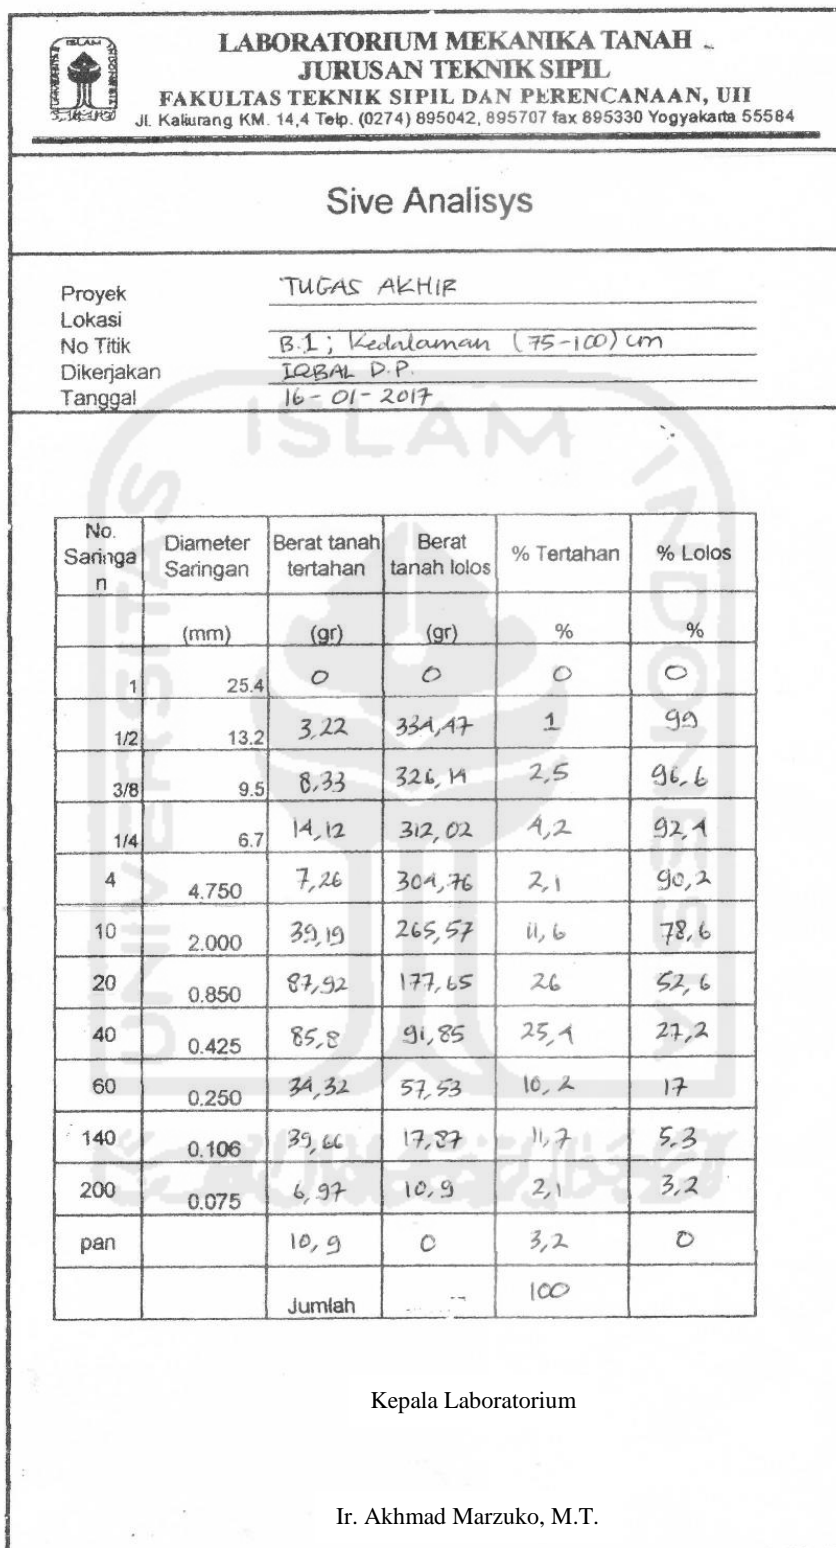 ISLAM
LABORATORIUM MEKANIKA TANAH
JURUSAN TEKNIK SIPIL
FAKULTAS TEKNIK SIPIL DAN PERENCANAAN, UII
Jl. Kaliurang KM. 14,4 Telp. (0274) 895042, 895707 fax 895330 Yogyakarta 55584
Sive Analisys
Proyek TUGAS AKHIR
Lokasi
No Titik B.1; Kedalaman (75-100) cm
Dikerjakan IQBAL D.P.
Tanggal 16-01-2017
UNIVERSITAS ISLAM INDONESIA
No. Saringan Diameter Saringan Berat tanah tertahan Berat tanah lolos % Tertahan % Lolos
(mm) (gr) (gr) % %
1 25.4 0 0 0 0
1/2 13.2 3,22 334,47 1 99
3/8 9.5 8,33 326,14 2,5 96,6
1/4 6.7 14,12 312,02 4,2 92,4
4 4.750 7,26 304,76 2,1 90,2
10 2.000 39,19 265,57 11,6 78,6
20 0.850 87,92 177,65 26 52,6
40 0.425 85,8 91,85 25,4 27,2
60 0.250 34,32 57,53 10,2 17
140 0.106 39,66 17,87 11,7 5,3
200 0.075 6,97 10,9 2,1 3,2
pan 10,9 0 3,2 0
Jumlah 100
Kepala Laboratorium
Ir. Akhmad Marzuko, M.T.